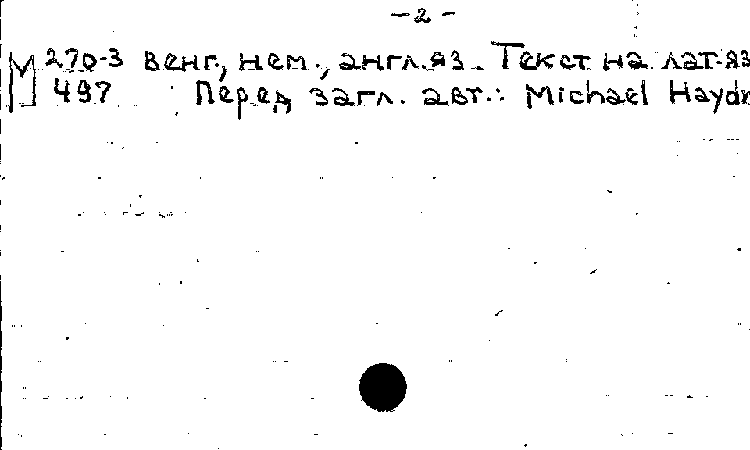 - 2 -
М 270-3 венг., нем., англ. яз. Текст на лат. яз
497 Перед загл. авт.: Michael Haydn